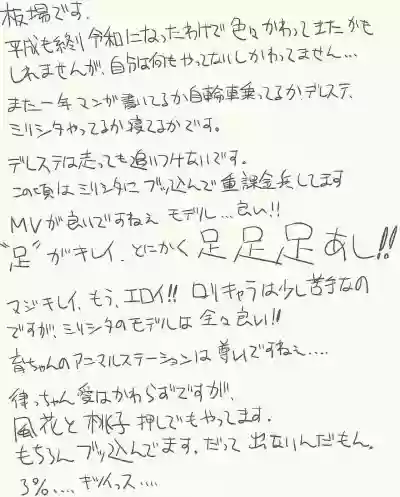 板場です。
平成も終り令和になったわけで色々かわってきたかも
しれませんが、自分は何もやってないしかわってません…
また一年マンが書いてるか自輪車乗ってるか、デレステ、
ミリシタやってるか寝てるかです。
デレステは走っても追いつけないです。
この頃はミリシタにブッ込んで重課金兵してます
MVが良いですねぇ モデル…良い!!
"足"がキレイ、とにかく足足足あし!!
マジキレイ、もう、エロイ!! ロリキャラは少し苦手なの
ですが、ミリシタのモデルは全々良い!!
育ちゃんのアニマルステーションは尊いですねぇ....
律っちゃん愛はかわらずですが、
風花と桃子押しでもやってます。
もちろんブッ込んでます。だって出ないんだもん。
3%.... ギツイっス....